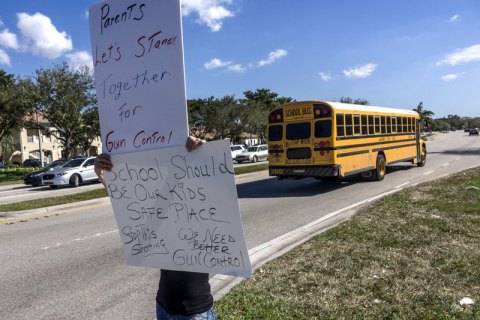 Parents
Let's Stand
Together
For
Gun Control
School Should
Be Our Kids
Safe Place
We Need
Better
Gun Control
SCHOOL BUS